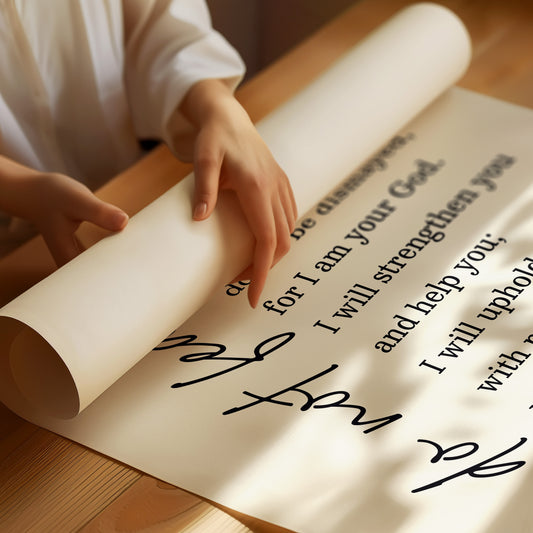 not
be dismayed,
for I am your God.
I will strengthen you
and help you;
I will uphold
with